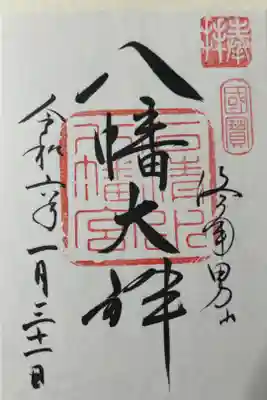 奉拝
國寶
洛南男山
八幡大神
石清水
八幡宮
令和六年一月三十一日